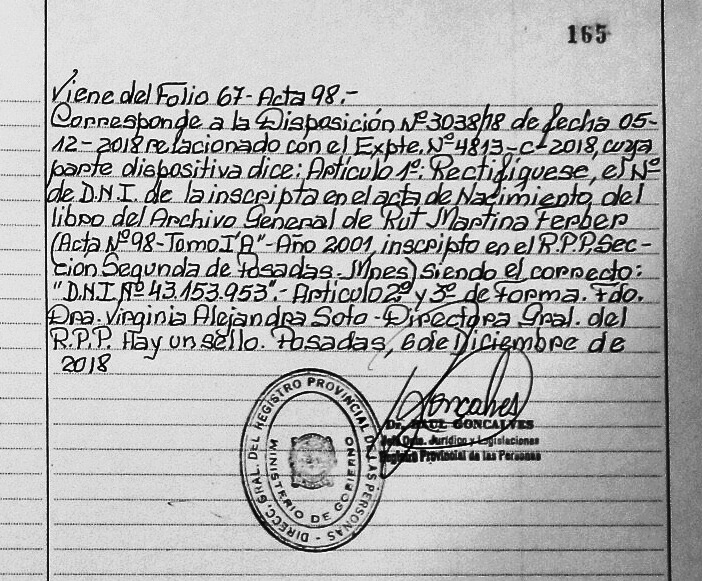 165
Viene del Folio 67- Acta 98.-
Corresponde a la Disposición Nº 3038/18 de fecha 05-
12-2018 relacionado con el Expte. Nº 4813-C-2018, cuya
parte dispositiva dice: Artículo 1º: Rectifíquese, el Nº
de D.N.I. de la inscripta en el acta de Nacimiento del
libro del Archivo General de Rut Martina Ferber
(Acta Nº 98-Tomo I"A"-Año 2001, inscripto en el R.P.P, Sec-
ción Segunda de Posadas. Mnes) siendo el correcto:
"D.N.I Nº 43.153.953".- Artículo 2º y 3º de forma. Fdo.
Dra. Virginia Alejandra Soto - Directora Gral. del
R.P.P. Hay un sello. Posadas, 6 de Diciembre de
2018
Goncalves
Dr. RAUL GONCALVES
Jefe Dpto. Jurídico y Legislaciones
Registro Provincial de las Personas
DIRECC. GRAL. DEL REGISTRO PROVINCIAL DE LAS PERSONAS -
MINISTERIO DE GOBIERNO